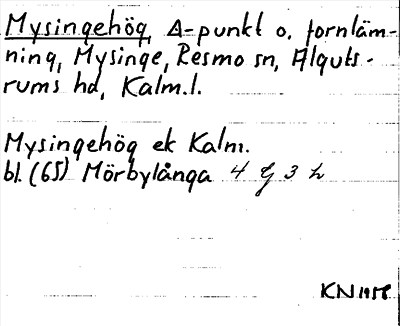 Mysingehög, Δ-punkt o. fornläm-
ning, Mysinge, Resmo sn, Alguts-
rums hd, Kalm. l.
Mysingehög ek Kalm.
bl. (65) Mörbylånga 4 G 3 h
KN 1958